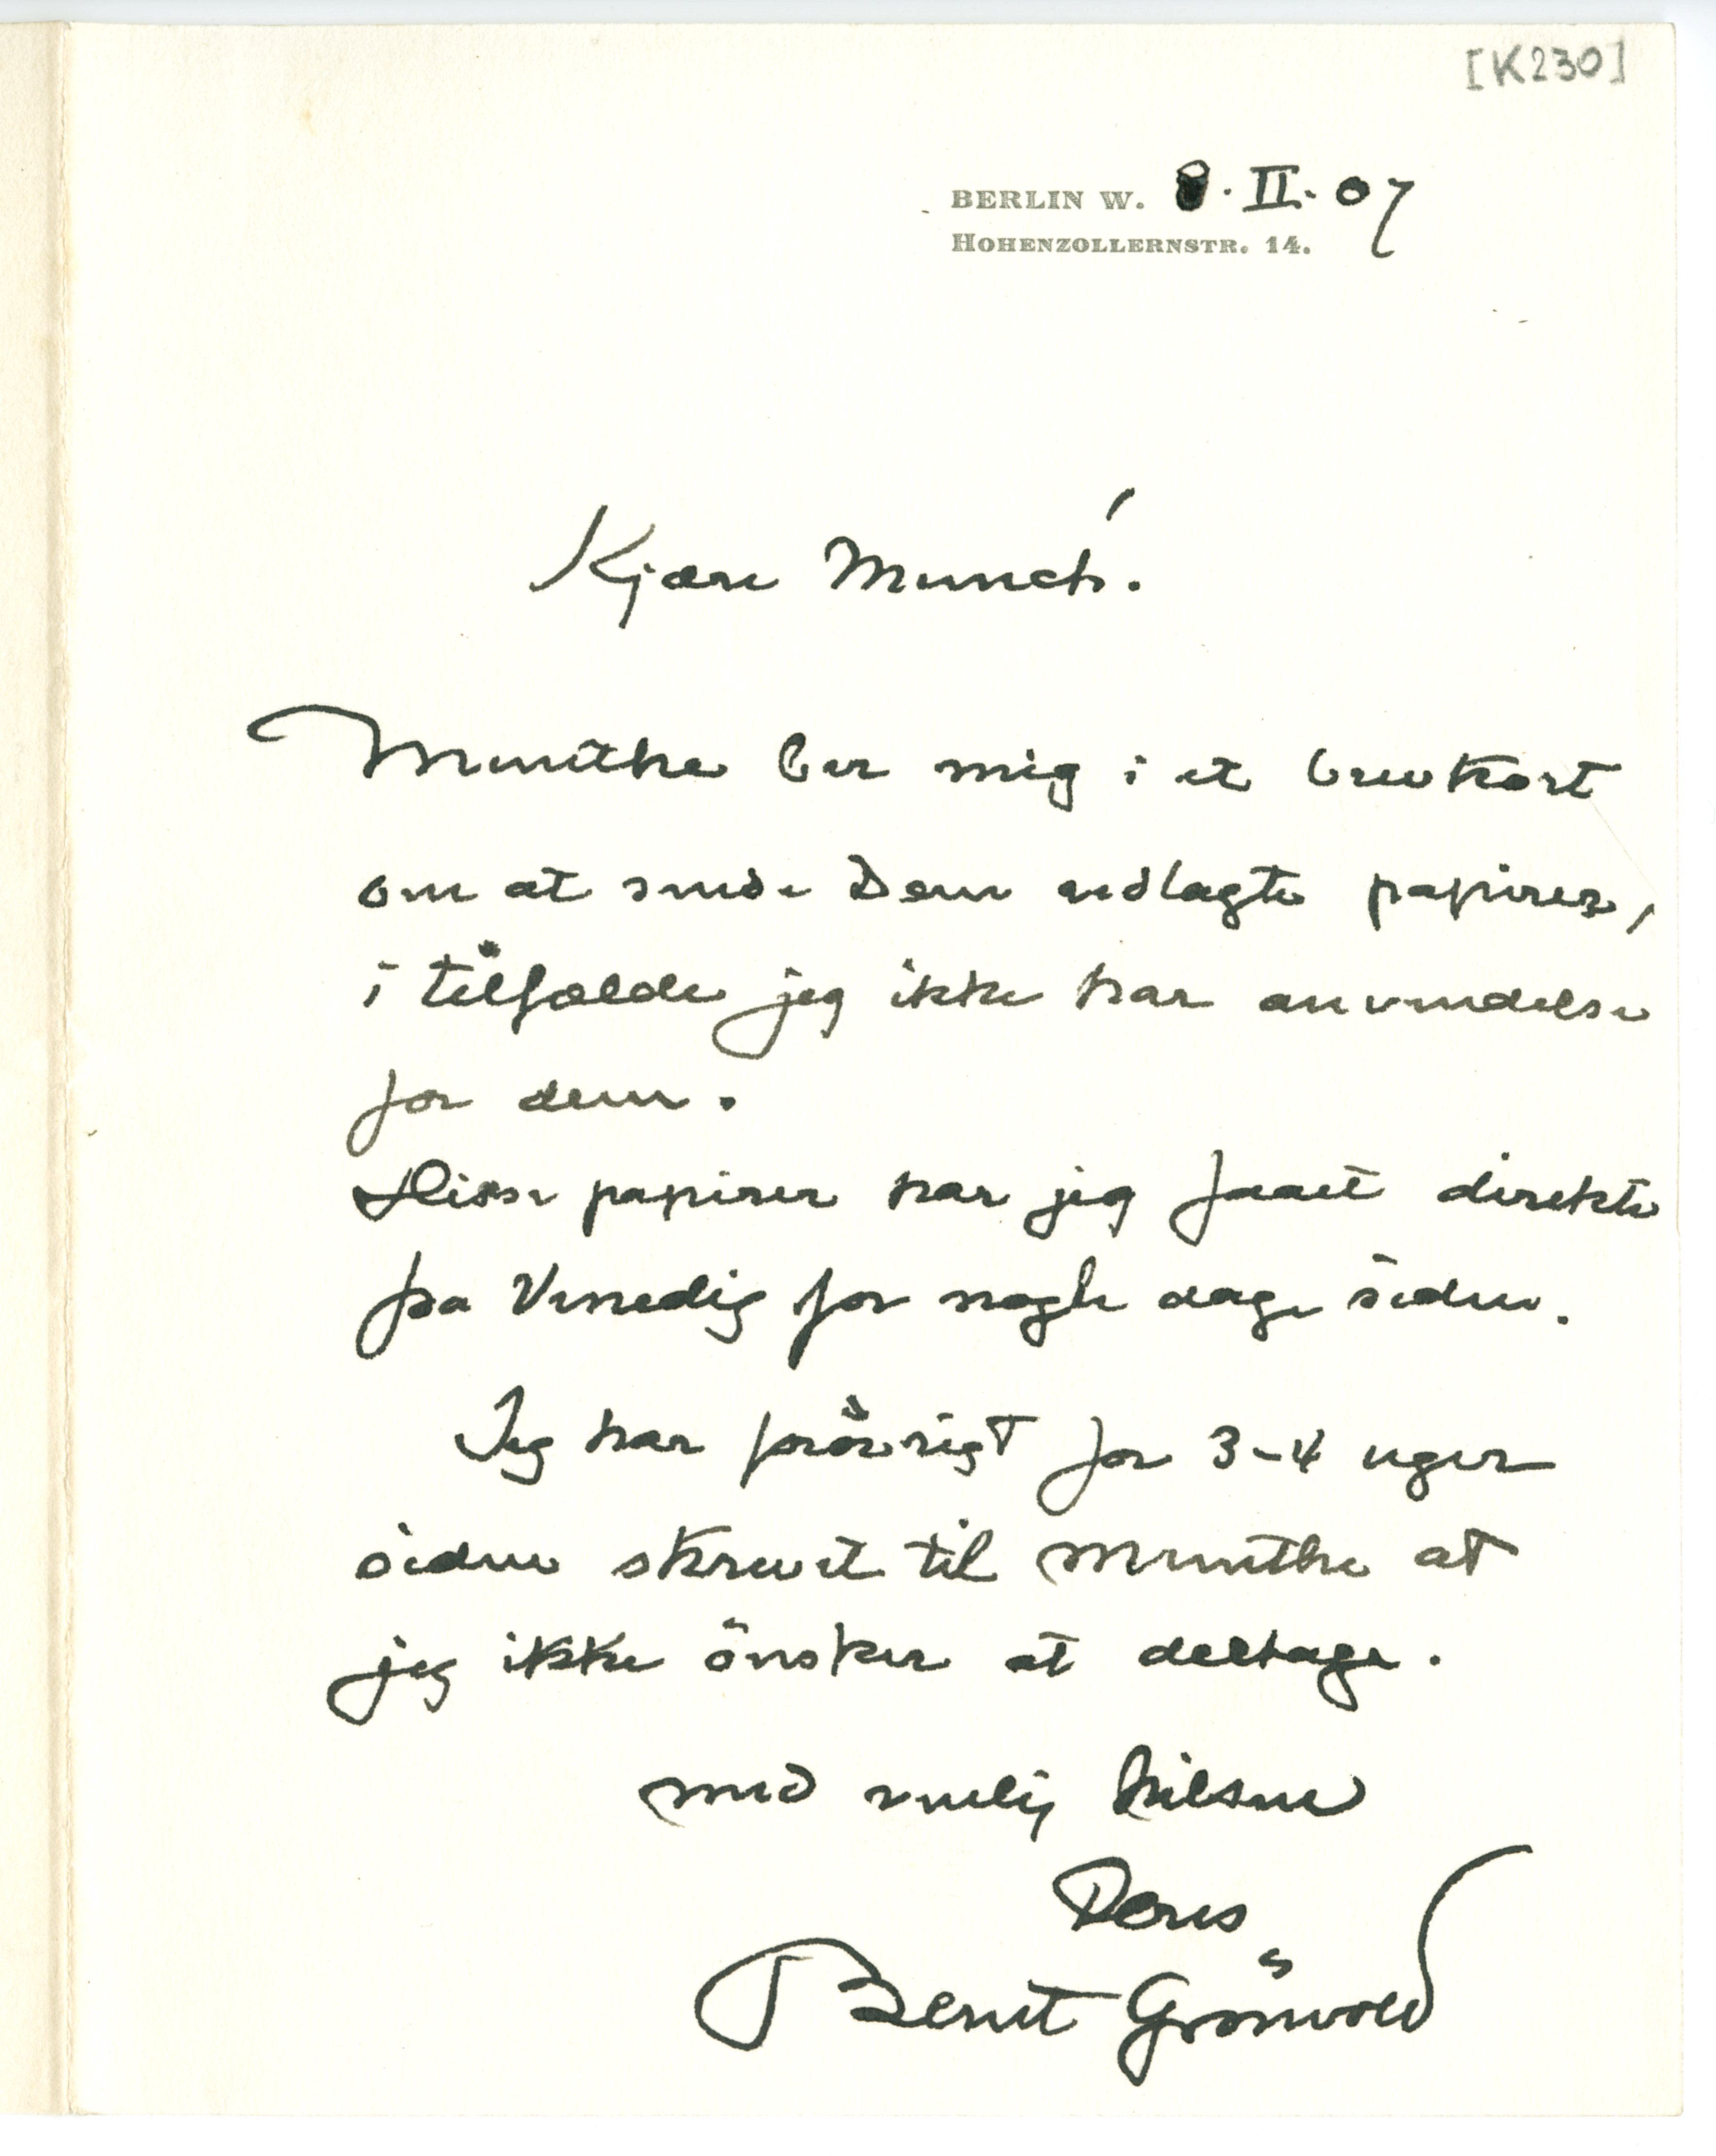 [K230]
BERLIN W. 8. II. 07
HOHENZOLLERNSTR. 14.
Kjære Munch.
Munthe ber mig i et brevkort
om at sende Dem indlagte papirer,
i tilfælde jeg ikke har anvendelse
for dem.
Disse papirer har jeg faaet direkte
fra Venedig for nogle dage siden.
Jeg har forövrigt for 3-4 uger
siden skrevet til Munthe at
jeg ikke önsker at deltage.
med venlig hilsen
Deres
Bernt Grönvold